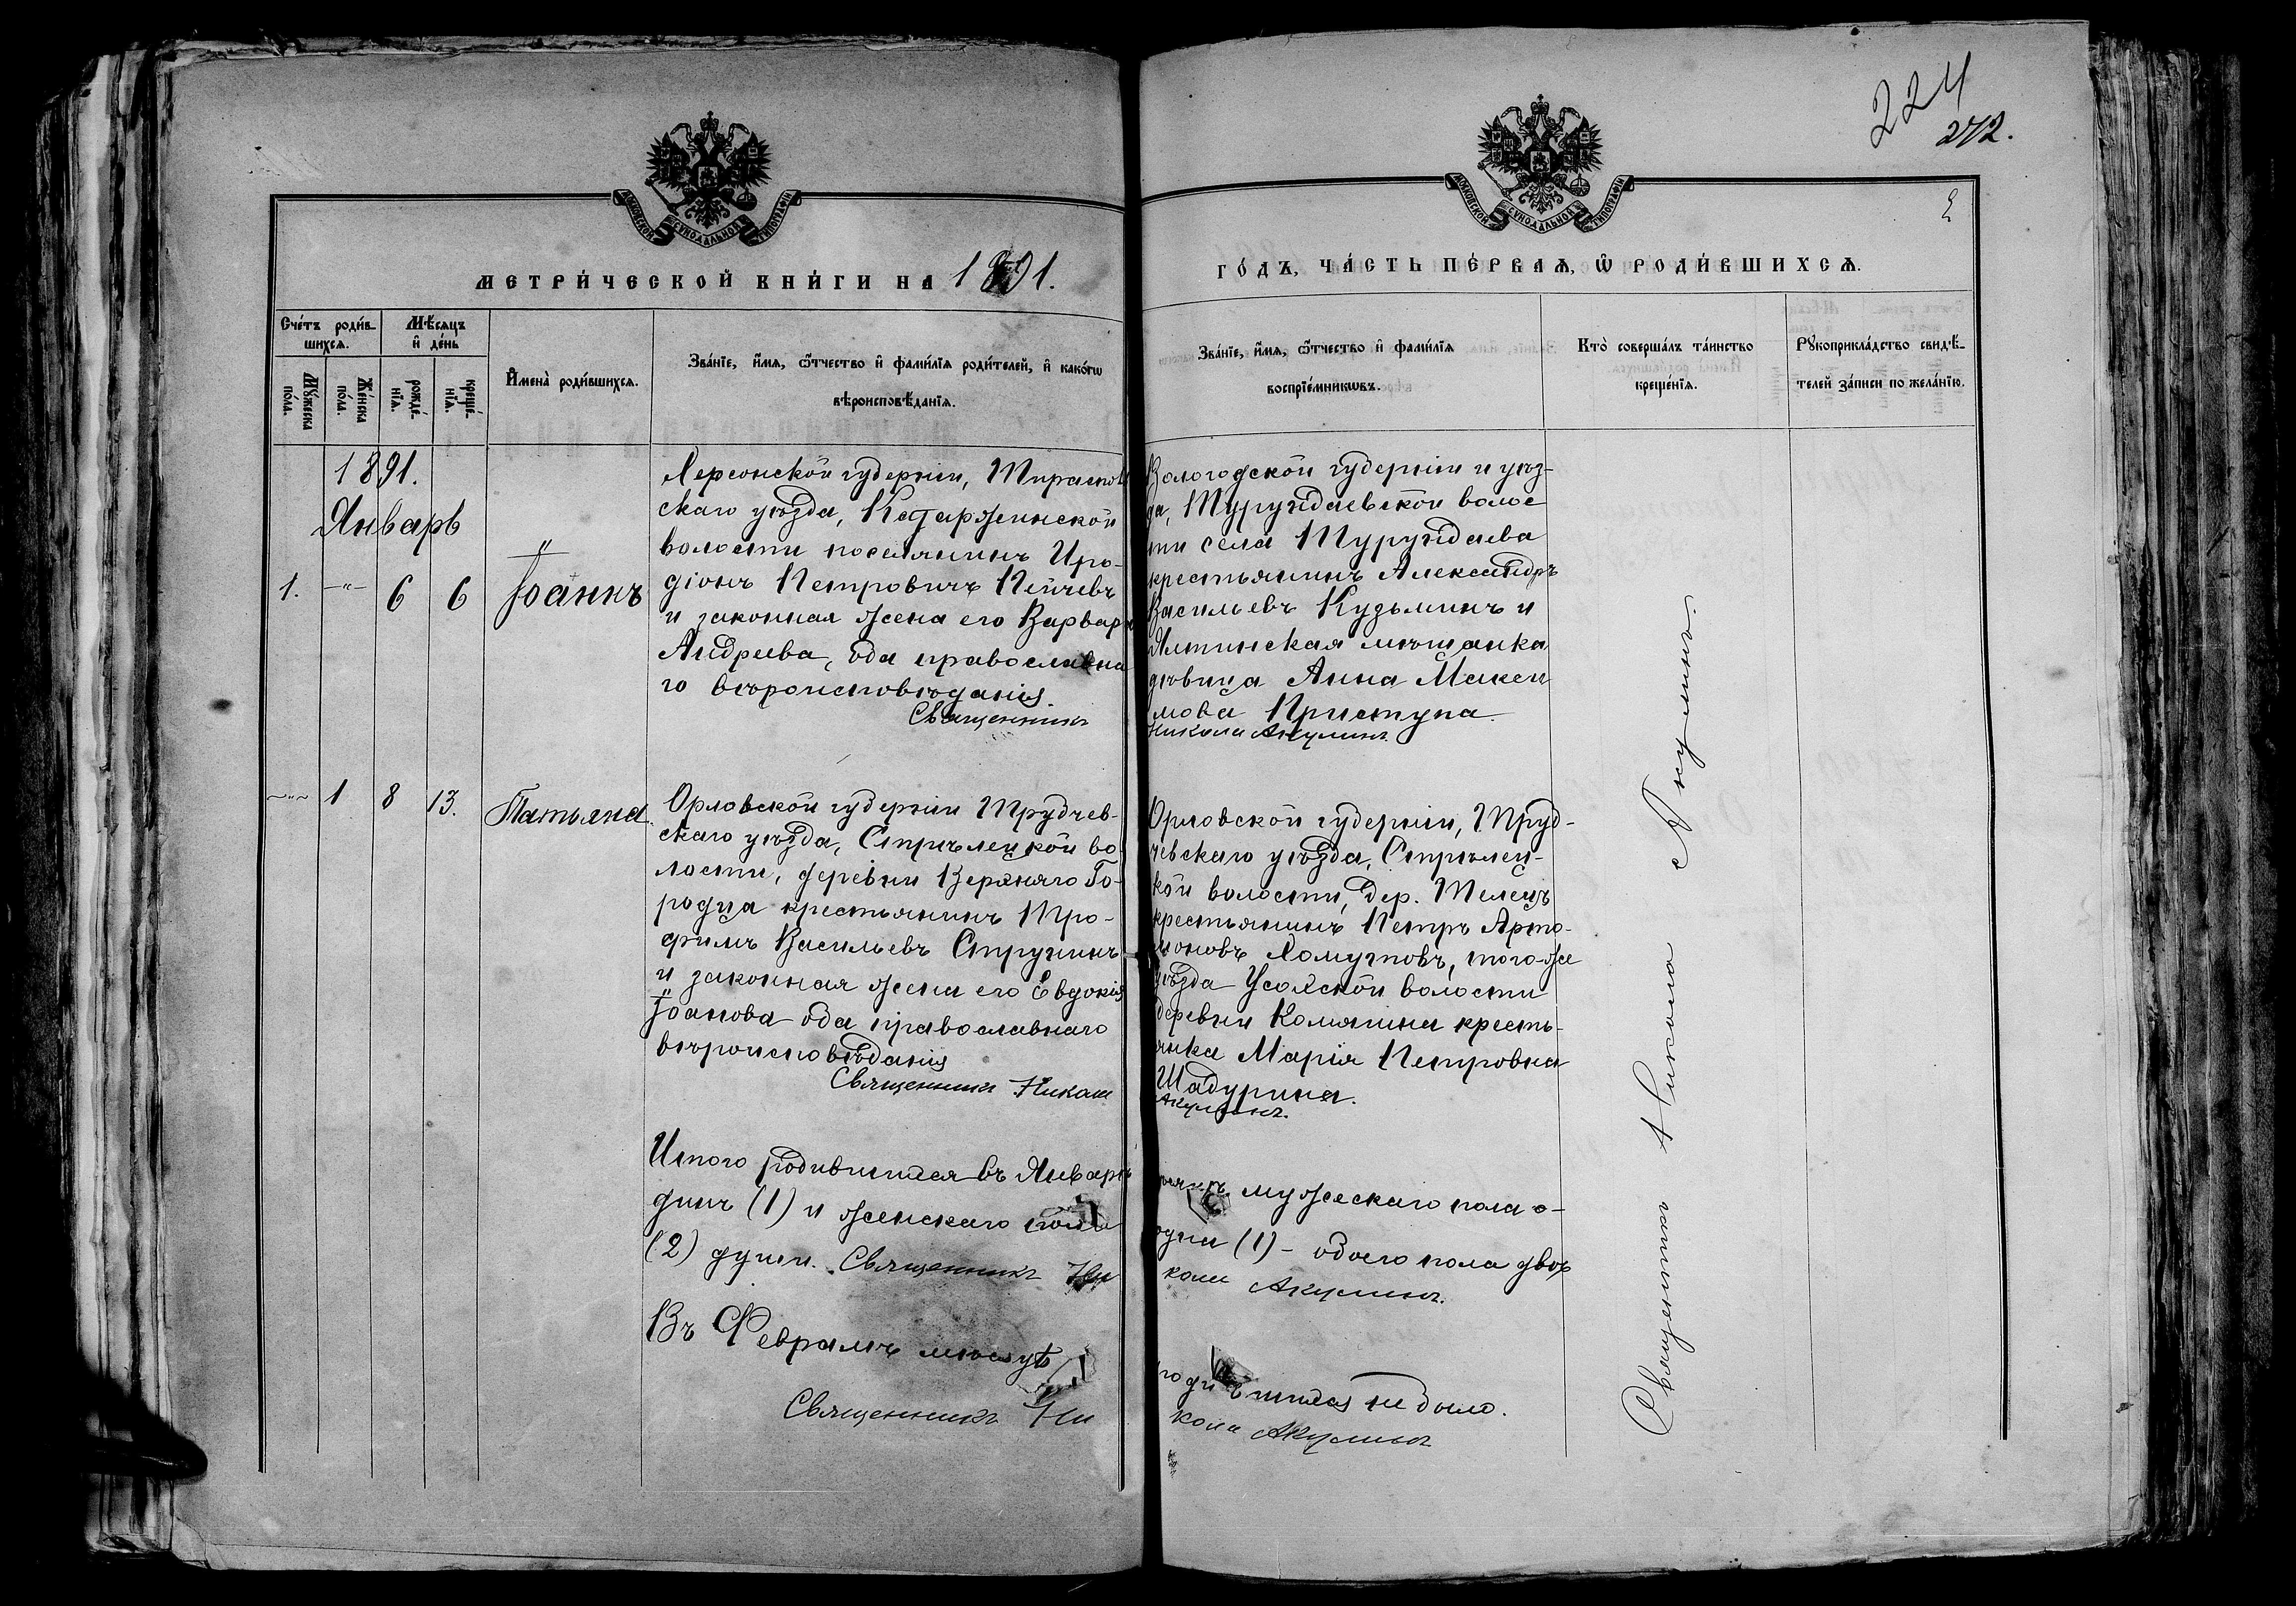 224
272.
МОСКОВСКОЙ СѴНОДАЛЬНОЙ ТИПОГРАФІИ
МОСКОВСКОЙ СѴНОДАЛЬНОЙ ТИПОГРАФІИ
МЕТРИ́ЧЕСКОЙ КНИ́ГИ НА 1891.
ГО́ДЪ, ЧА́СТЬ ПЕ́РВАѦ, Ѽ РОДИ́ВШИХСѦ.
Сче́тъ роди́в-
шихсѧ.
Мѣ́сѧцъ
и҆ де́нь
Мꙋ́жеска
по́ла.
Же́нска
по́ла.
рожде́-
нїѧ.
креще́-
нїѧ.
И҆мена̀ роди́вшихсѧ.
Зва́нїе, и҆́мѧ, ѻ҆́тчество и҆ фами́лїѧ роди́телей, и҆ како́гѡ
вѣроисповѣ́данїѧ.
Зва́нїе, и҆́мѧ, ѻ҆́тчество и҆ фами́лїѧ
воспрїе́мникѡвъ.
Кто̀ соверша́лъ та́инство
креще́нїѧ.
Рꙋкоприкла́дство свидѣ́-
телей за́писи по жела́нїю.
1891.
Январь
1. -"- 6 6 Іоаннъ
Херсонской губерніи, Тираспол
скаго уѣзда, Катаржинской
волости поселянинъ Иро-
діонъ Петровичъ Пейчевъ
и законная жена его Варвара
Андреева, оба православна
го вѣроисповѣданія.
Священникъ
Вологодской губерніи и уѣз-
да, Турундаевской волос
ти села Турундаева
крестьянинъ Александръ
Васильевъ Кузьминъ и
Ялтинская мѣщанка
дѣвица Анна Макси
мова Приступа.
Никола Акулинъ.
-"- 1 8 13. Татьяна.
Орловской губерніи Трубчев-
скаго уѣзда, Стрѣлецкой во-
лости, деревни Верхняго Го-
родца крестьянинъ Тро-
фимъ Васильевъ Стручинъ
и законная жена его Евдокія
Іоанова оба православнаго
вѣроисповѣданія
Священникъ Никола
Орловской губерніи, Труб-
чевскаго уѣзда, Стрѣлец-
кой волости, дер. Телецъ
крестьянинъ Петръ Арта-
моновъ Хомутовъ, того-же
уѣзда Усохской волости
деревни Комягина кресть-
янка Марія Петровна
Шадурина.
Акулинъ.
Итого родившихся въ Январѣ
динъ (1) и женскаго пола
(2) души. Священникъ Ни
мужескаго пола о-
одна (1) - обоего пола двѣ
кола Акулинъ.
Въ Февралѣ мѣсяцѣ
Священникъ Ни
родившихся не было.
кола Акулинъ
Священникъ Никола Акулинъ.